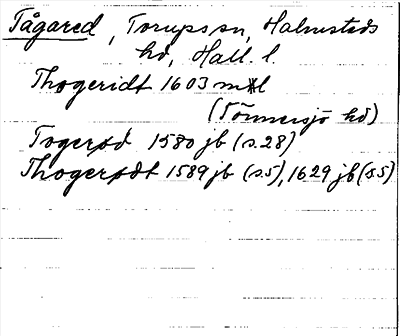 Tågared, Torups sn, Halmstads
hd, Hall. l.
Thogeridt 1603 mtl
(Tönnersjö hd)
Togerød 1580 jb (s. 28)
Thogerødt 1589 jb (s. 5), 1629 jb (s. 5)